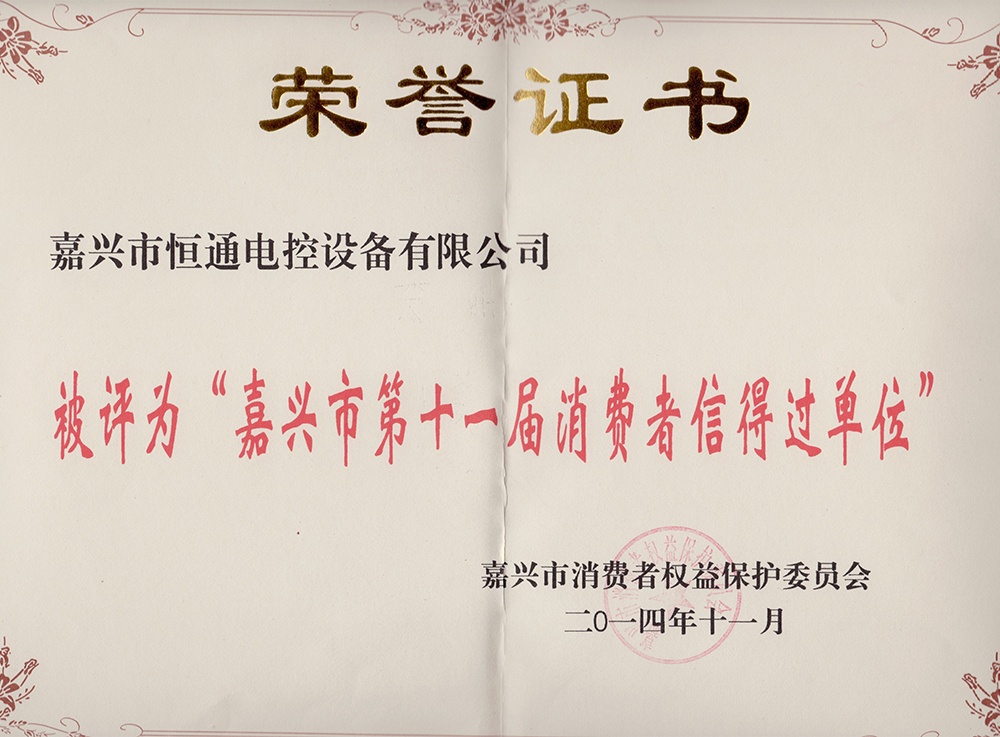 荣誉证书
嘉兴市恒通电控设备有限公司
被评为“嘉兴市第十一届消费者信得过单位”
嘉兴市消费者权益保护委员会
二0一四年十一月